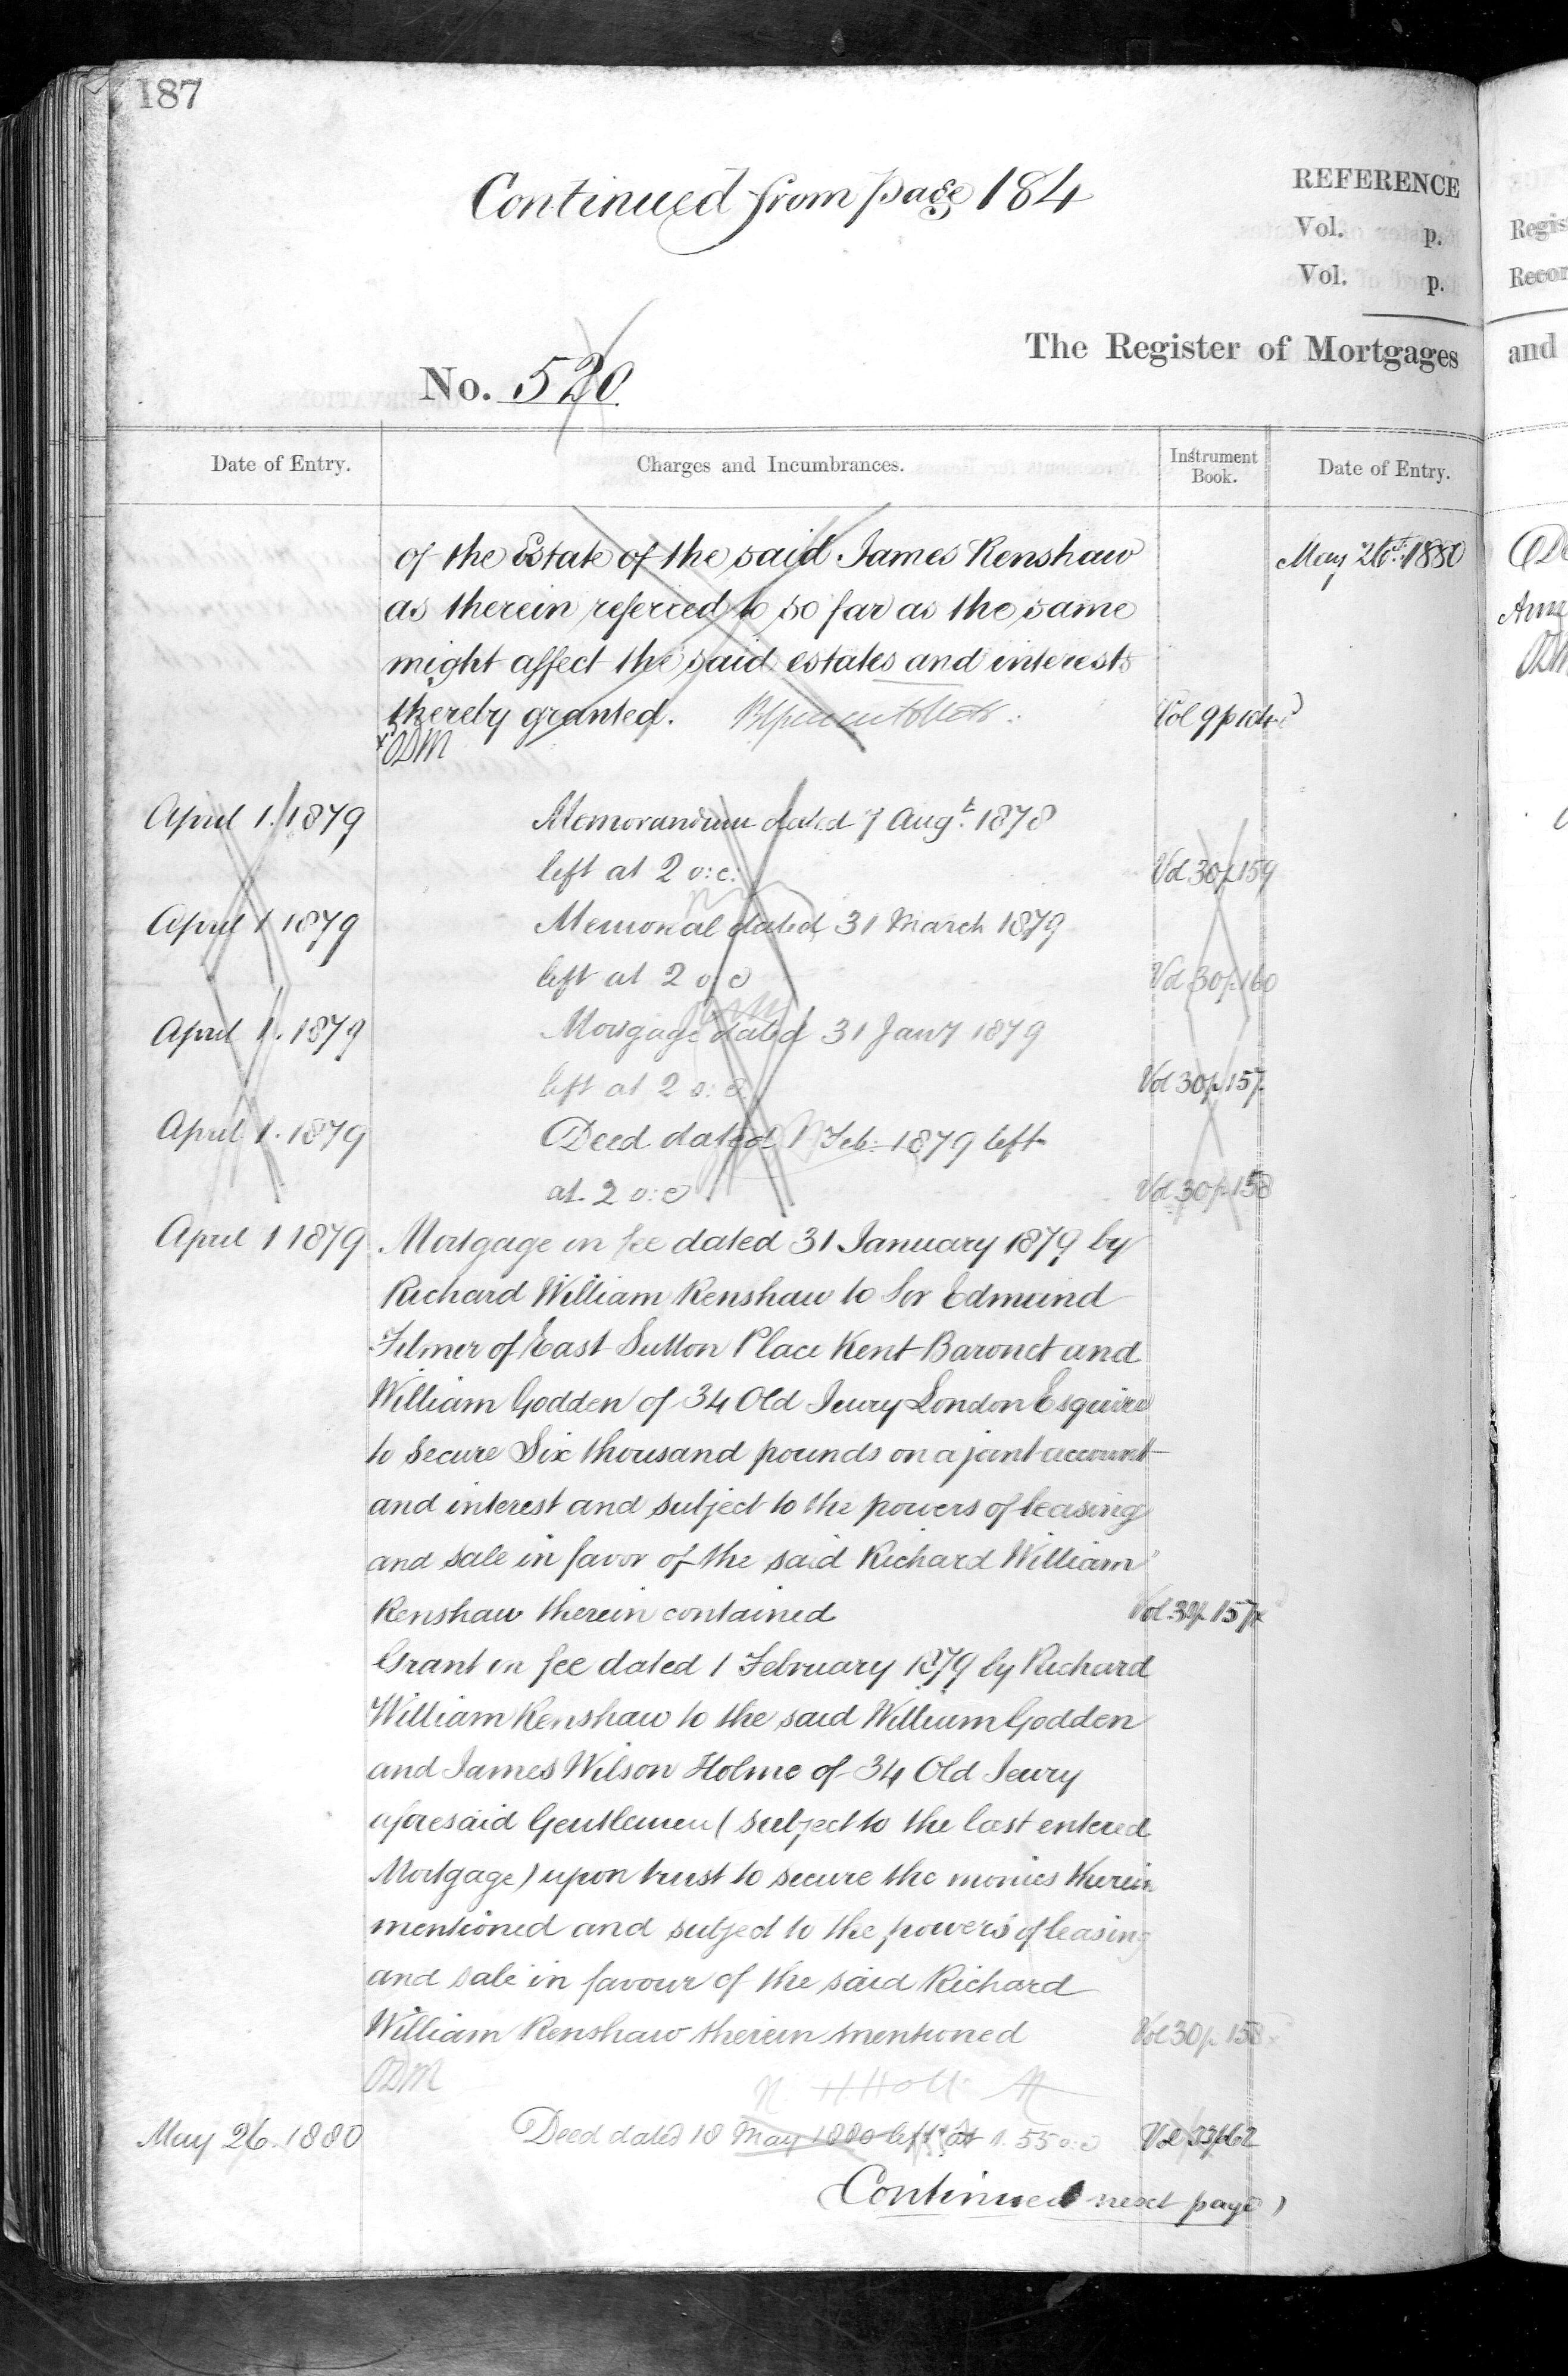 187
Continued from page 184
REFERENCE
Vol. p.
Vol. p.
The Register of Mortgages
No. 520
Date of Entry.
Charges and Incumbrances.
Instrument Book.
Date of Entry.
of the Estate of the said James Renshaw
May 26th 1880
as therein referred to so far as the same
might affect the said estates and interests
thereby granted.
Vol 9 p 104
ODM
April 1. 1879 Memorandum dated 7 Augt. 1878
left at 2 o:c: Vol 30 p 159
April 1 1879 Memorial dated 31 March 1879
left at 2 o c Vol 30 p. 160
April 1. 1879 Mortgage dated 31 Jany 1879
left at 2 o: c Vol 30 p. 157
April 1. 1879 Deed dated 1 Feb: 1879 left
at 2 o: c Vol 30 p 158
April 1 1879 Mortgage in fee dated 31 January 1879 by
Richard William Renshaw to Sir Edmund
Filmer of East Sutton Place Kent Baronet and
William Godden of 34 Old Jewry London Esquire
to secure Six thousand pounds on a joint account
and interest and subject to the powers of leasing
and sale in favor of the said Richard William
Renshaw therein contained Vol. 30 p. 157
Grant in fee dated 1 February 1879 by Richard
William Renshaw to the said William Godden
and James Wilson Holme of 34 Old Jewry
aforesaid Gentlemen (subject to the last entered
Mortgage) upon trust to secure the monies therein
mentioned and subject to the powers of leasing
and sale in favour of the said Richard
William Renshaw therein mentioned Vol 30 p. 158
ODM
May 26. 1880 Deed dated 18 May 1880 left at 1. 55 o: c Vol 33 p 62
(Continued next page)
Regis
Recor
and